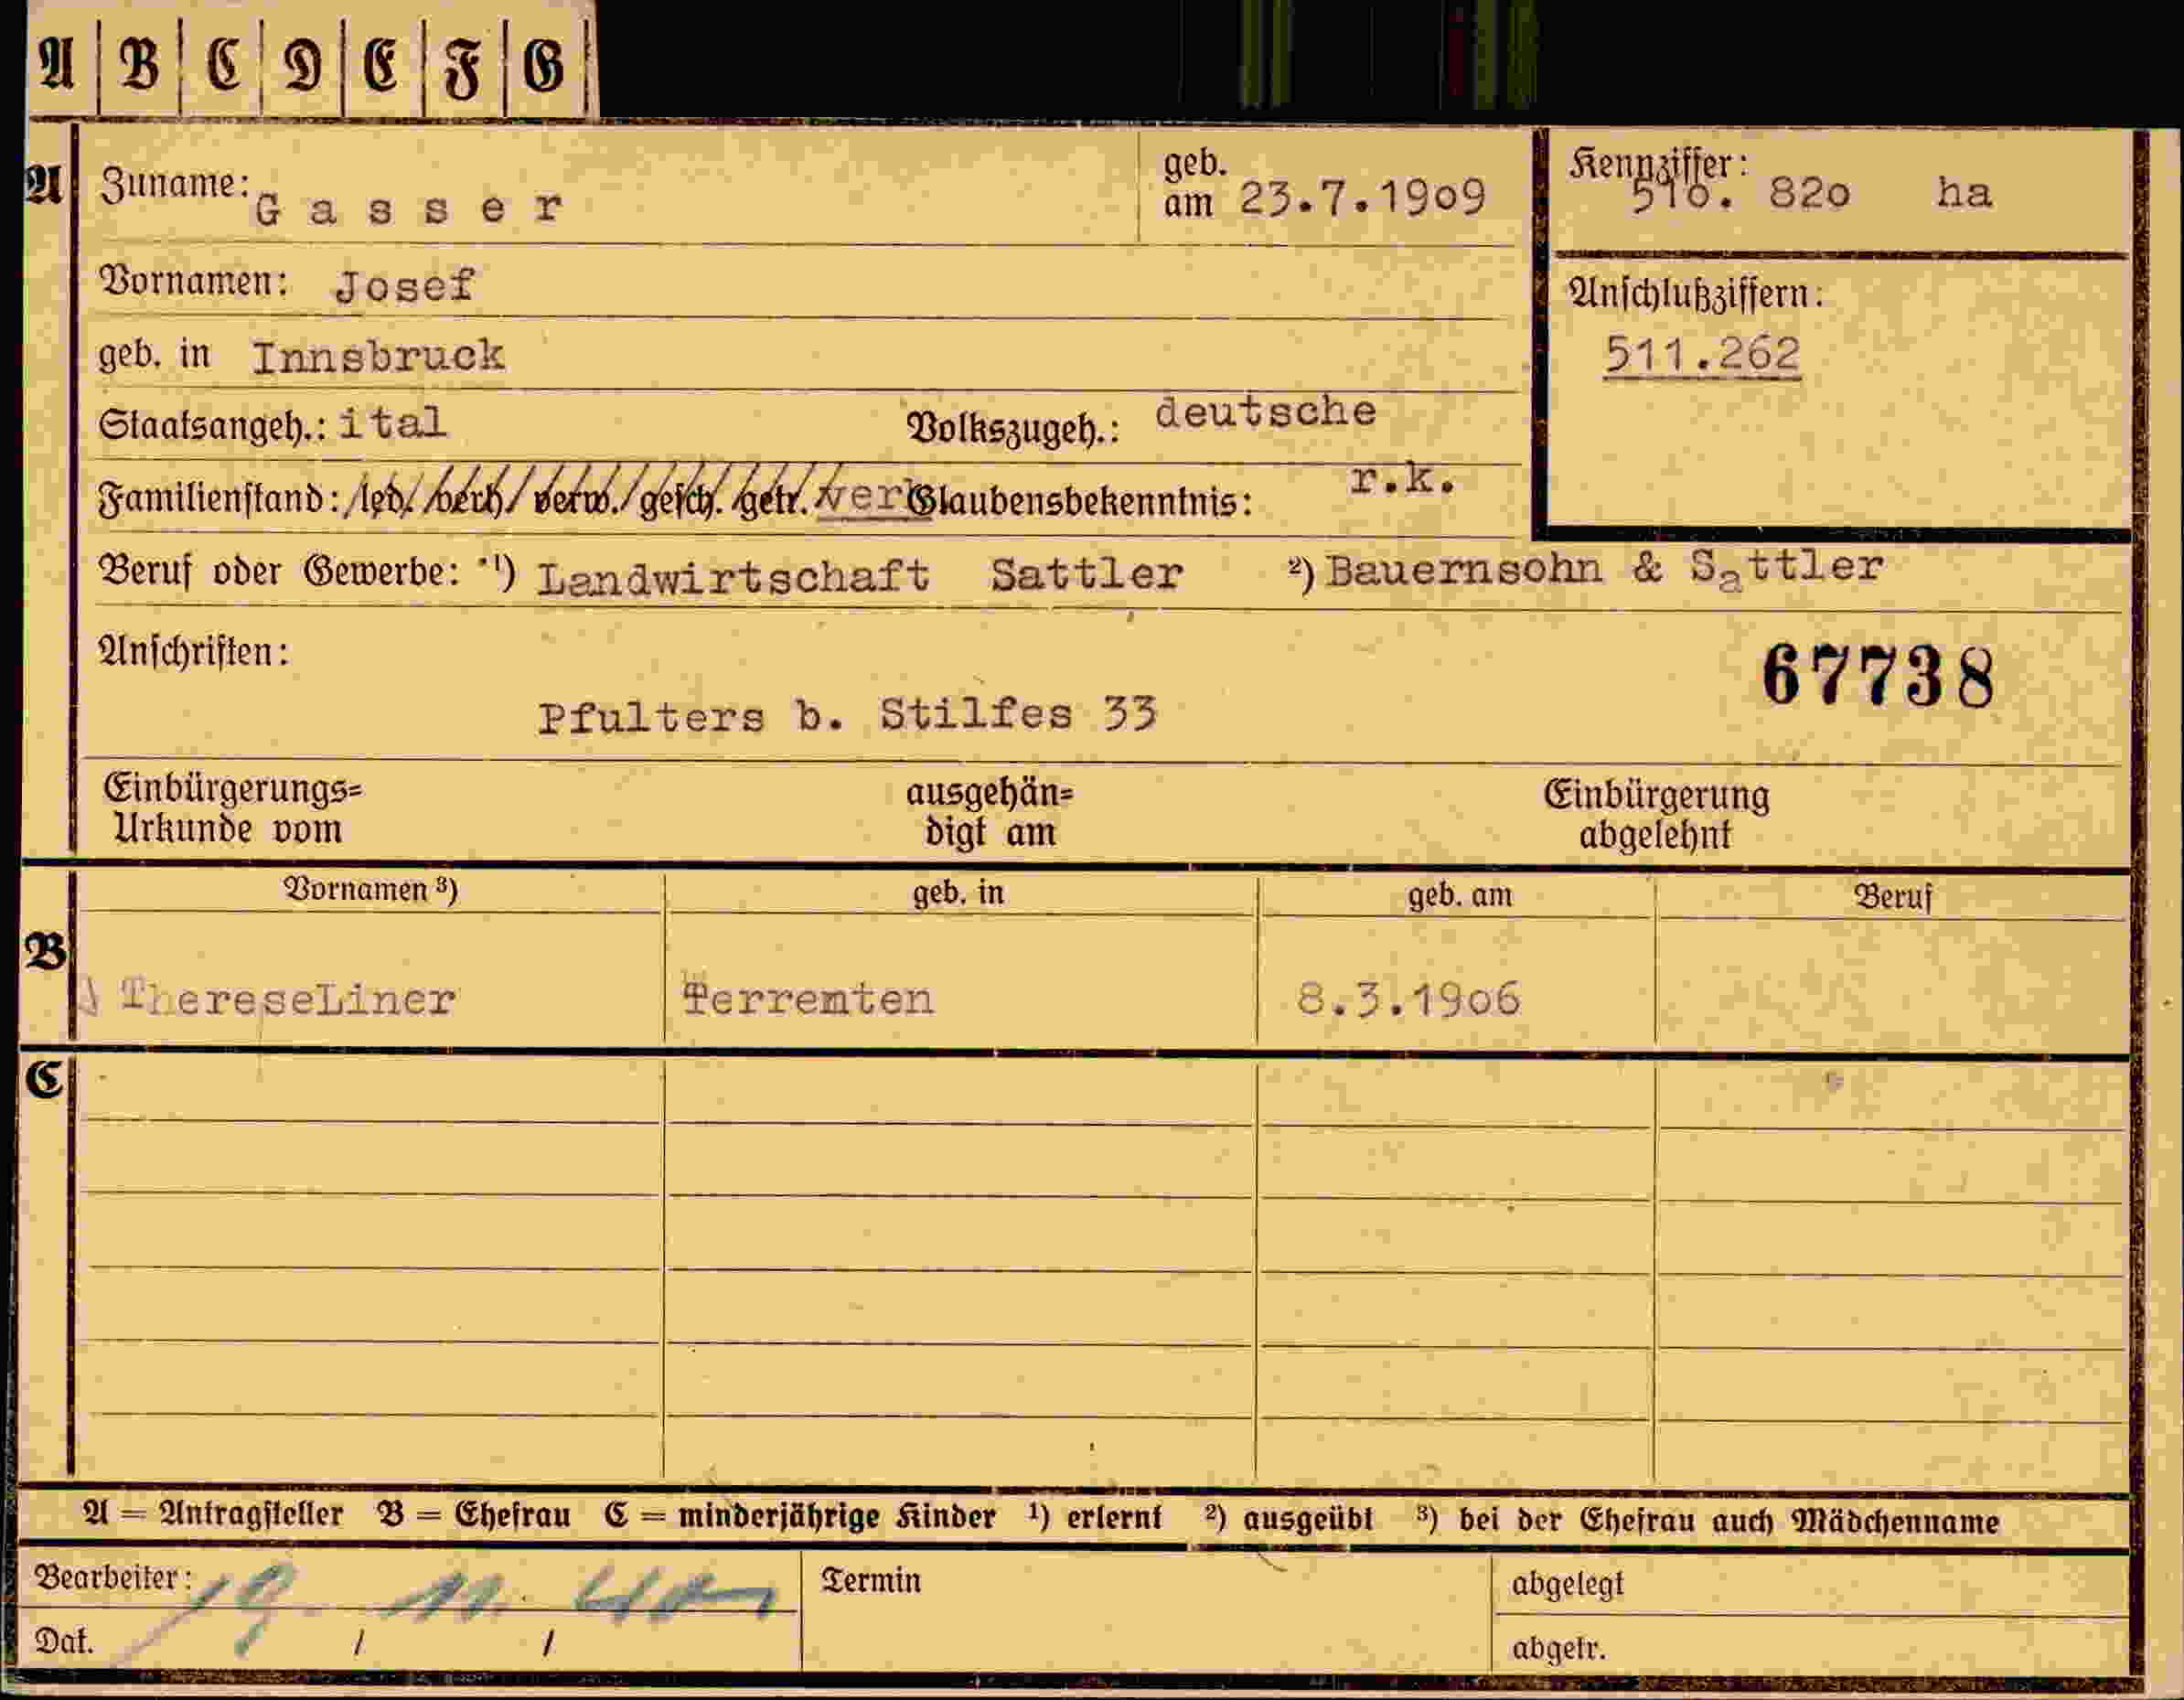 A B C D E F G
A Zuname: Gasser geb. am 23.7.1909 Kennziffer: 510. 820 ha
Vornamen: Josef Anschlußziffern:
geb. in Innsbruck 511.262
Staatsangeh.: ital Volkszugeh.: deutsche
Familienstand: led. verh. verw. gesch. getr. verh Glaubensbekenntnis: r.k.
Beruf oder Gewerbe: ¹) Landwirtschaft Sattler ²) Bauernsohn & Sattler
Anschriften: 67738
Pfulters b. Stilfes 33
Einbürgerungs= ausgehän= Einbürgerung
Urkunde vom digt am abgelehnt
Vornamen ³) geb. in geb. am Beruf
B
ThereseLiner Terrenten 8.3.1906
C
A = Antragsteller B = Ehefrau C = minderjährige Kinder ¹) erlernt ²) ausgeübt ³) bei der Ehefrau auch Mädchenname
Bearbeiter: 19. 11. 40 Termin abgelegt
Dat. / / abgetr.